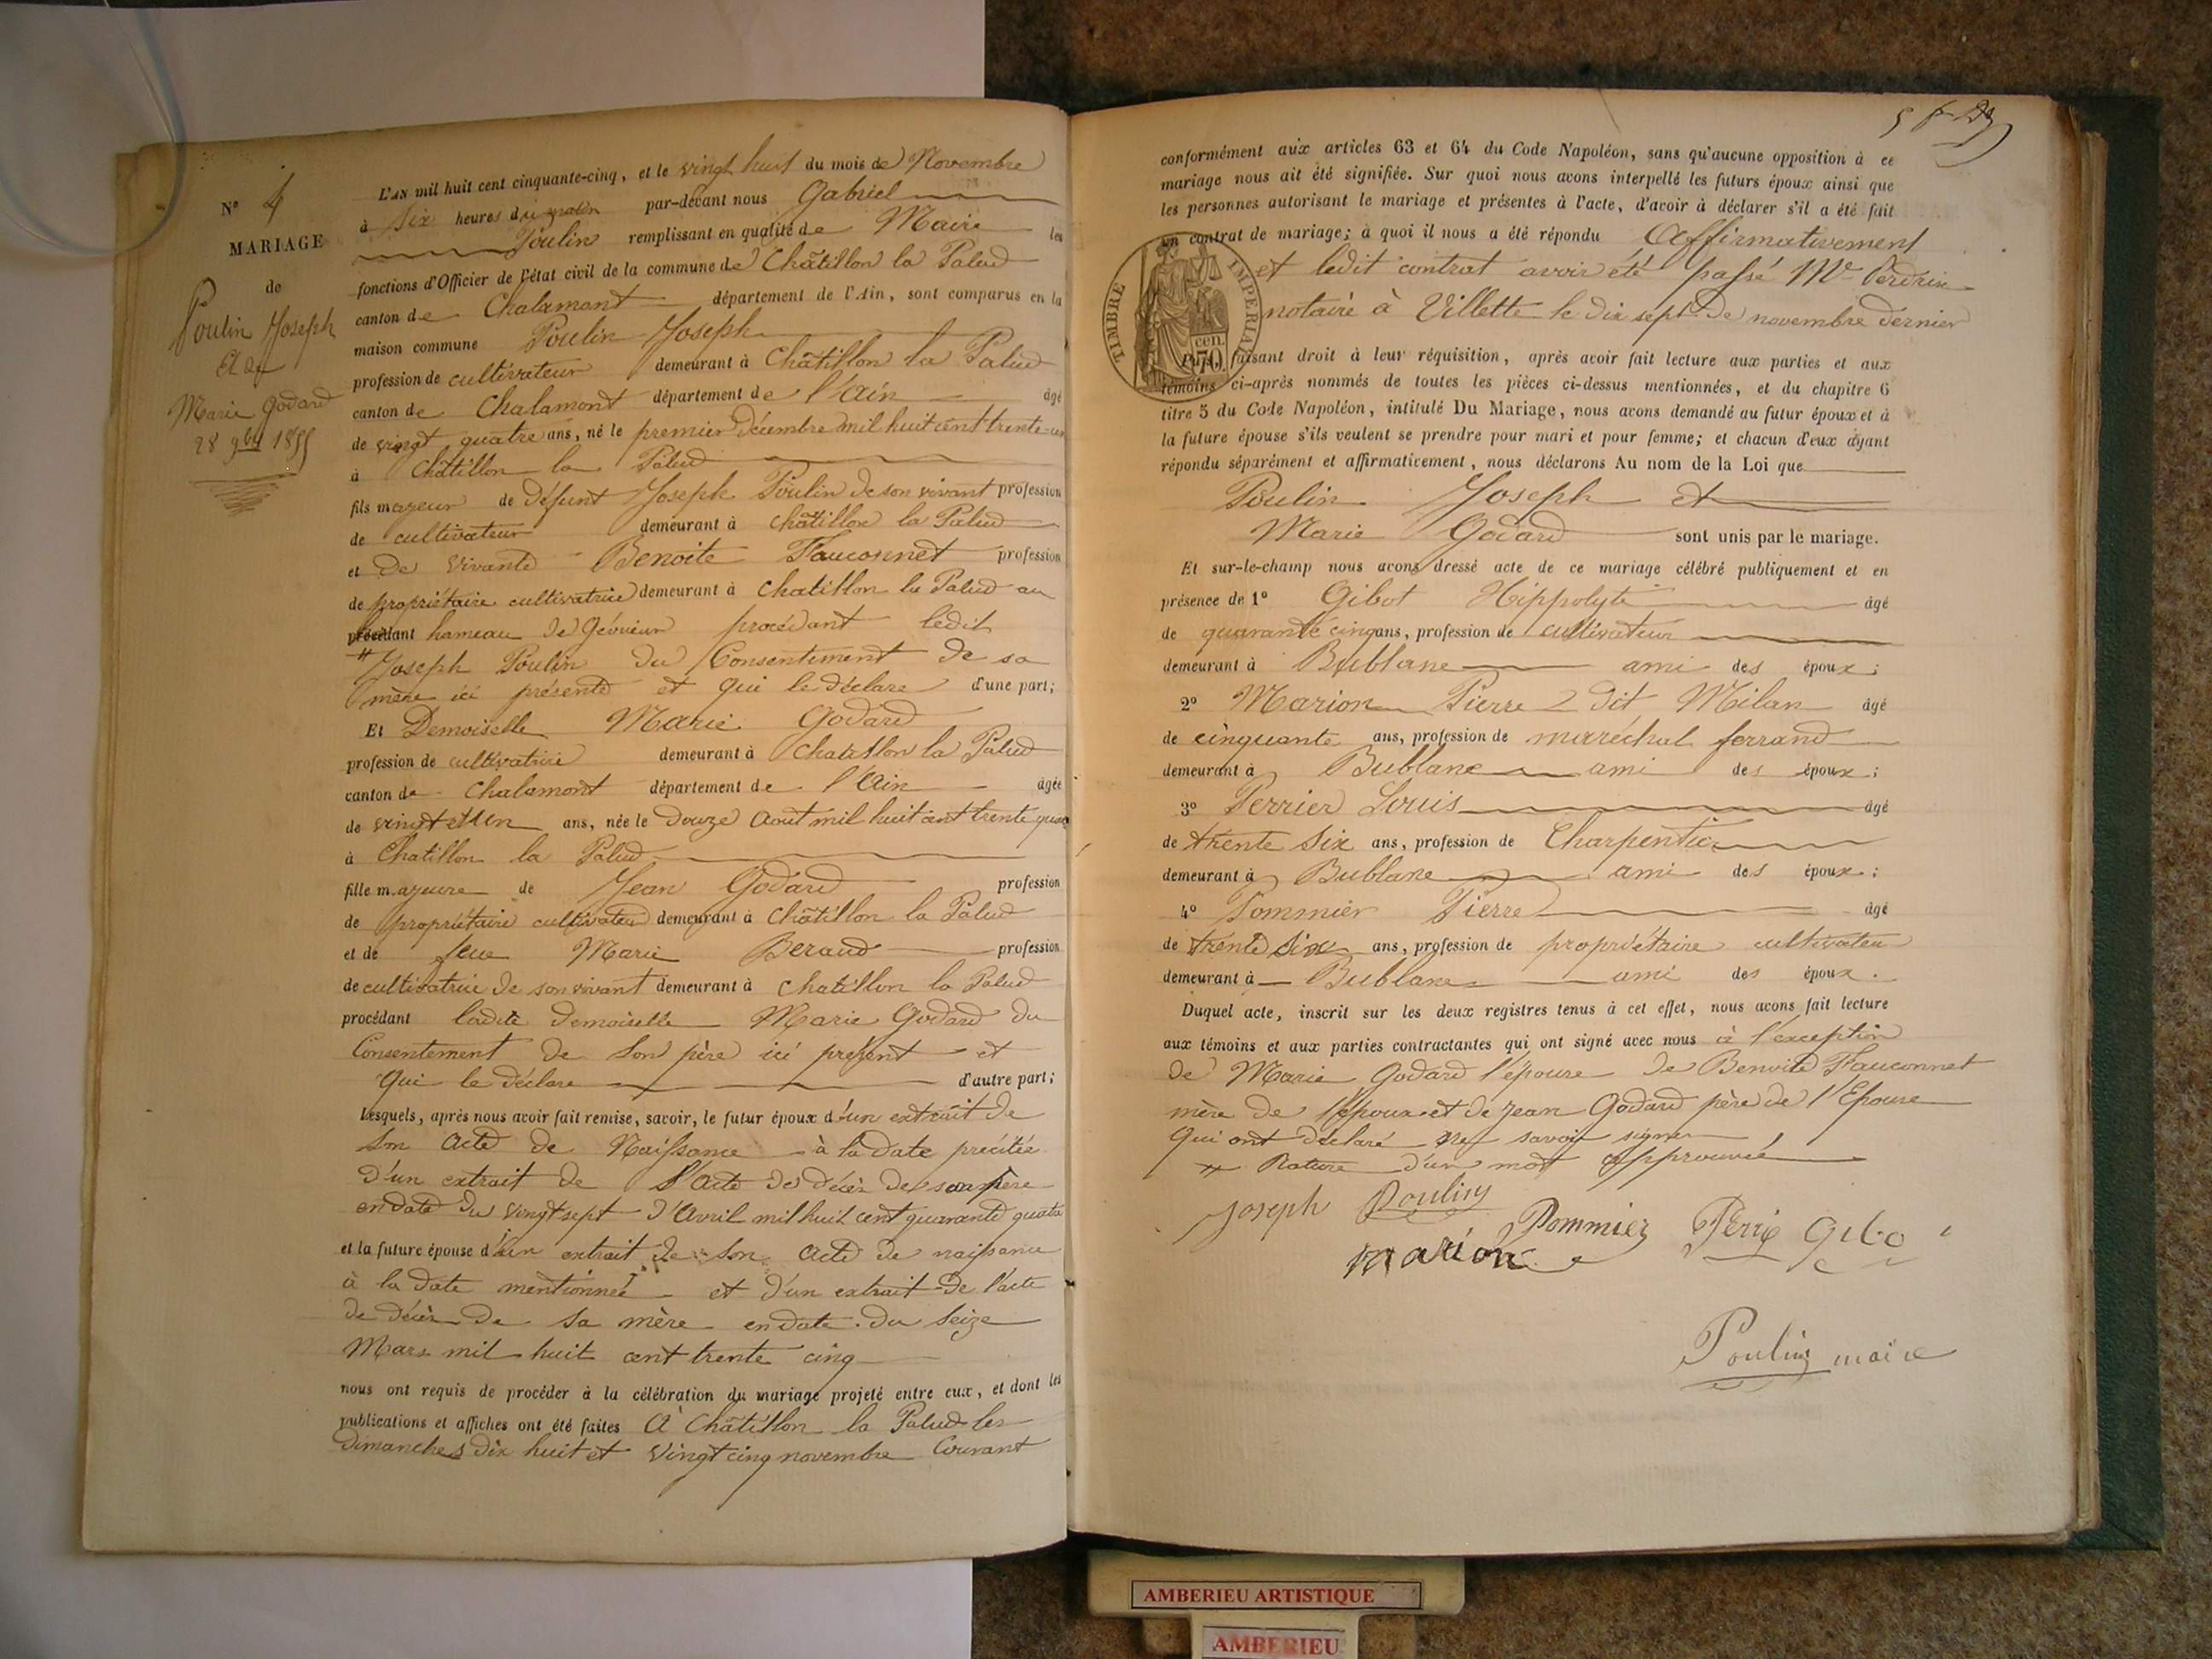 N° 4
MARIAGE
de
Poulin Joseph
Et de
Marie Godard
28 9bre 1855
L'AN mil huit cent cinquante-cinq, et le vingt huit du mois de Novembre
à six heures du matin par-devant nous Gabriel
Poulin remplissant en qualité de Maire les
fonctions d'Officier de l'état civil de la commune de Châtillon la Palud
canton de Chalamont département de l'Ain, sont comparus en la
maison commune Poulin Joseph
profession de cultivateur demeurant à Châtillon la Palud
canton de Chalamont département de l'Ain âgé
de vingt quatre ans, né le premier Décembre mil huit cent trente-un
à Châtillon la Palud
fils majeur de défunt Joseph Poulin de son vivant profession
de cultivateur demeurant à châtillon la Palud
et de vivante Benoite Fauconnet profession
de propriétaire cultivatrice demeurant à Chatillon la Palud au
procédant hameau de Gévrieux procédant ledit
Joseph Poulin du Consentement de sa
mère ici présente et qui le déclare d'une part;
Et Demoiselle Marie Godard
profession de cultivatrice demeurant à Chatillon la Palud
canton de Chalamont département de l'Ain âgée
de vingt et un ans, née le Douze Aout mil huit cent trente quatre
à Chatillon la Palud
fille majeure de Jean Godard profession
de propriétaire cultivateur demeurant à Châtillon la Palud
et de feue Marie Beraud profession
de cultivatrice de son vivant demeurant à Chatillon la Palud
procédant ladite demoiselle Marie Godard du
Consentement de son père ici present et
qui le déclare d'autre part;
Lesquels, après nous avoir fait remise, savoir, le futur époux d'un extrait de
son acte de Naissance à la date précitée
d'un extrait de l'acte de décès de son père
en date du vingt sept d'Avril mil huit cent quarante quatre
et la future épouse d'un extrait de son acte de naissance
à la date mentionnée et d'un extrait de l'acte
de décès de sa mère en date du seize
Mars mil huit cent trente cinq
nous ont requis de procéder à la célébration du mariage projeté entre eux, et dont les
publications et affiches ont été faites à Châtillon la Palud les
dimanches dix huit et vingt cinq novembre Courant
conformément aux articles 63 et 64 du Code Napoléon, sans qu'aucune opposition à ce
mariage nous ait été signifiée. Sur quoi nous avons interpellé les futurs époux ainsi que
les personnes autorisant le mariage et présentes à l'acte, d'avoir à déclarer s'il a été fait
un contrat de mariage; à quoi il nous a été répondu Affirmativement
et ledit contrat avoir été passé Me Perdrix
notaire à Villette le dix sept de novembre dernier
TIMBRE IMPERIAL
70 cen.
faisant droit à leur réquisition, après avoir fait lecture aux parties et aux
témoins ci-après nommés de toutes les pièces ci-dessus mentionnées, et du chapitre 6
titre 5 du Code Napoléon, intitulé Du Mariage, nous avons demandé au futur époux et à
la future épouse s'ils veulent se prendre pour mari et pour femme; et chacun d'eux ayant
répondu séparément et affirmativement, nous déclarons Au nom de la Loi que
Poulin Joseph et
Marie Godard sont unis par le mariage.
Et sur-le-champ nous avons dressé acte de ce mariage célébré publiquement et en
présence de 1° Gibot Hippolyte âgé
de quarante cinq ans, profession de cultivateur
demeurant à Bublane ami des époux;
2° Marion Pierre dit Milan âgé
de cinquante ans, profession de maréchal ferrand
demeurant à Bublane ami des époux;
3° Perrier Louis âgé
de trente six ans, profession de Charpentier
demeurant à Bublane ami des époux;
4° Pommier Pierre âgé
de trente six ans, profession de propriétaire cultivateur
demeurant à Bublane ami des époux.
Duquel acte, inscrit sur les deux registres tenus à cet effet, nous avons fait lecture
aux témoins et aux parties contractantes qui ont signé avec nous à l'exception
de Marie Godard l'épouse de Benoite Fauconnet
mère de l'époux et de Jean Godard père de l'Epouse
qui ont déclaré ne savoir signer
Rature d'un mot approuvée
Joseph Poulin
Pommier Perrie Gibo
marion
Poulin maire
AMBERIEU ARTISTIQUE
AMBERIEU